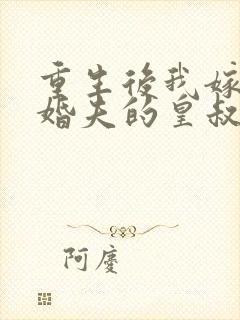 重生後我嫁
婚夫的皇叔
阿慶